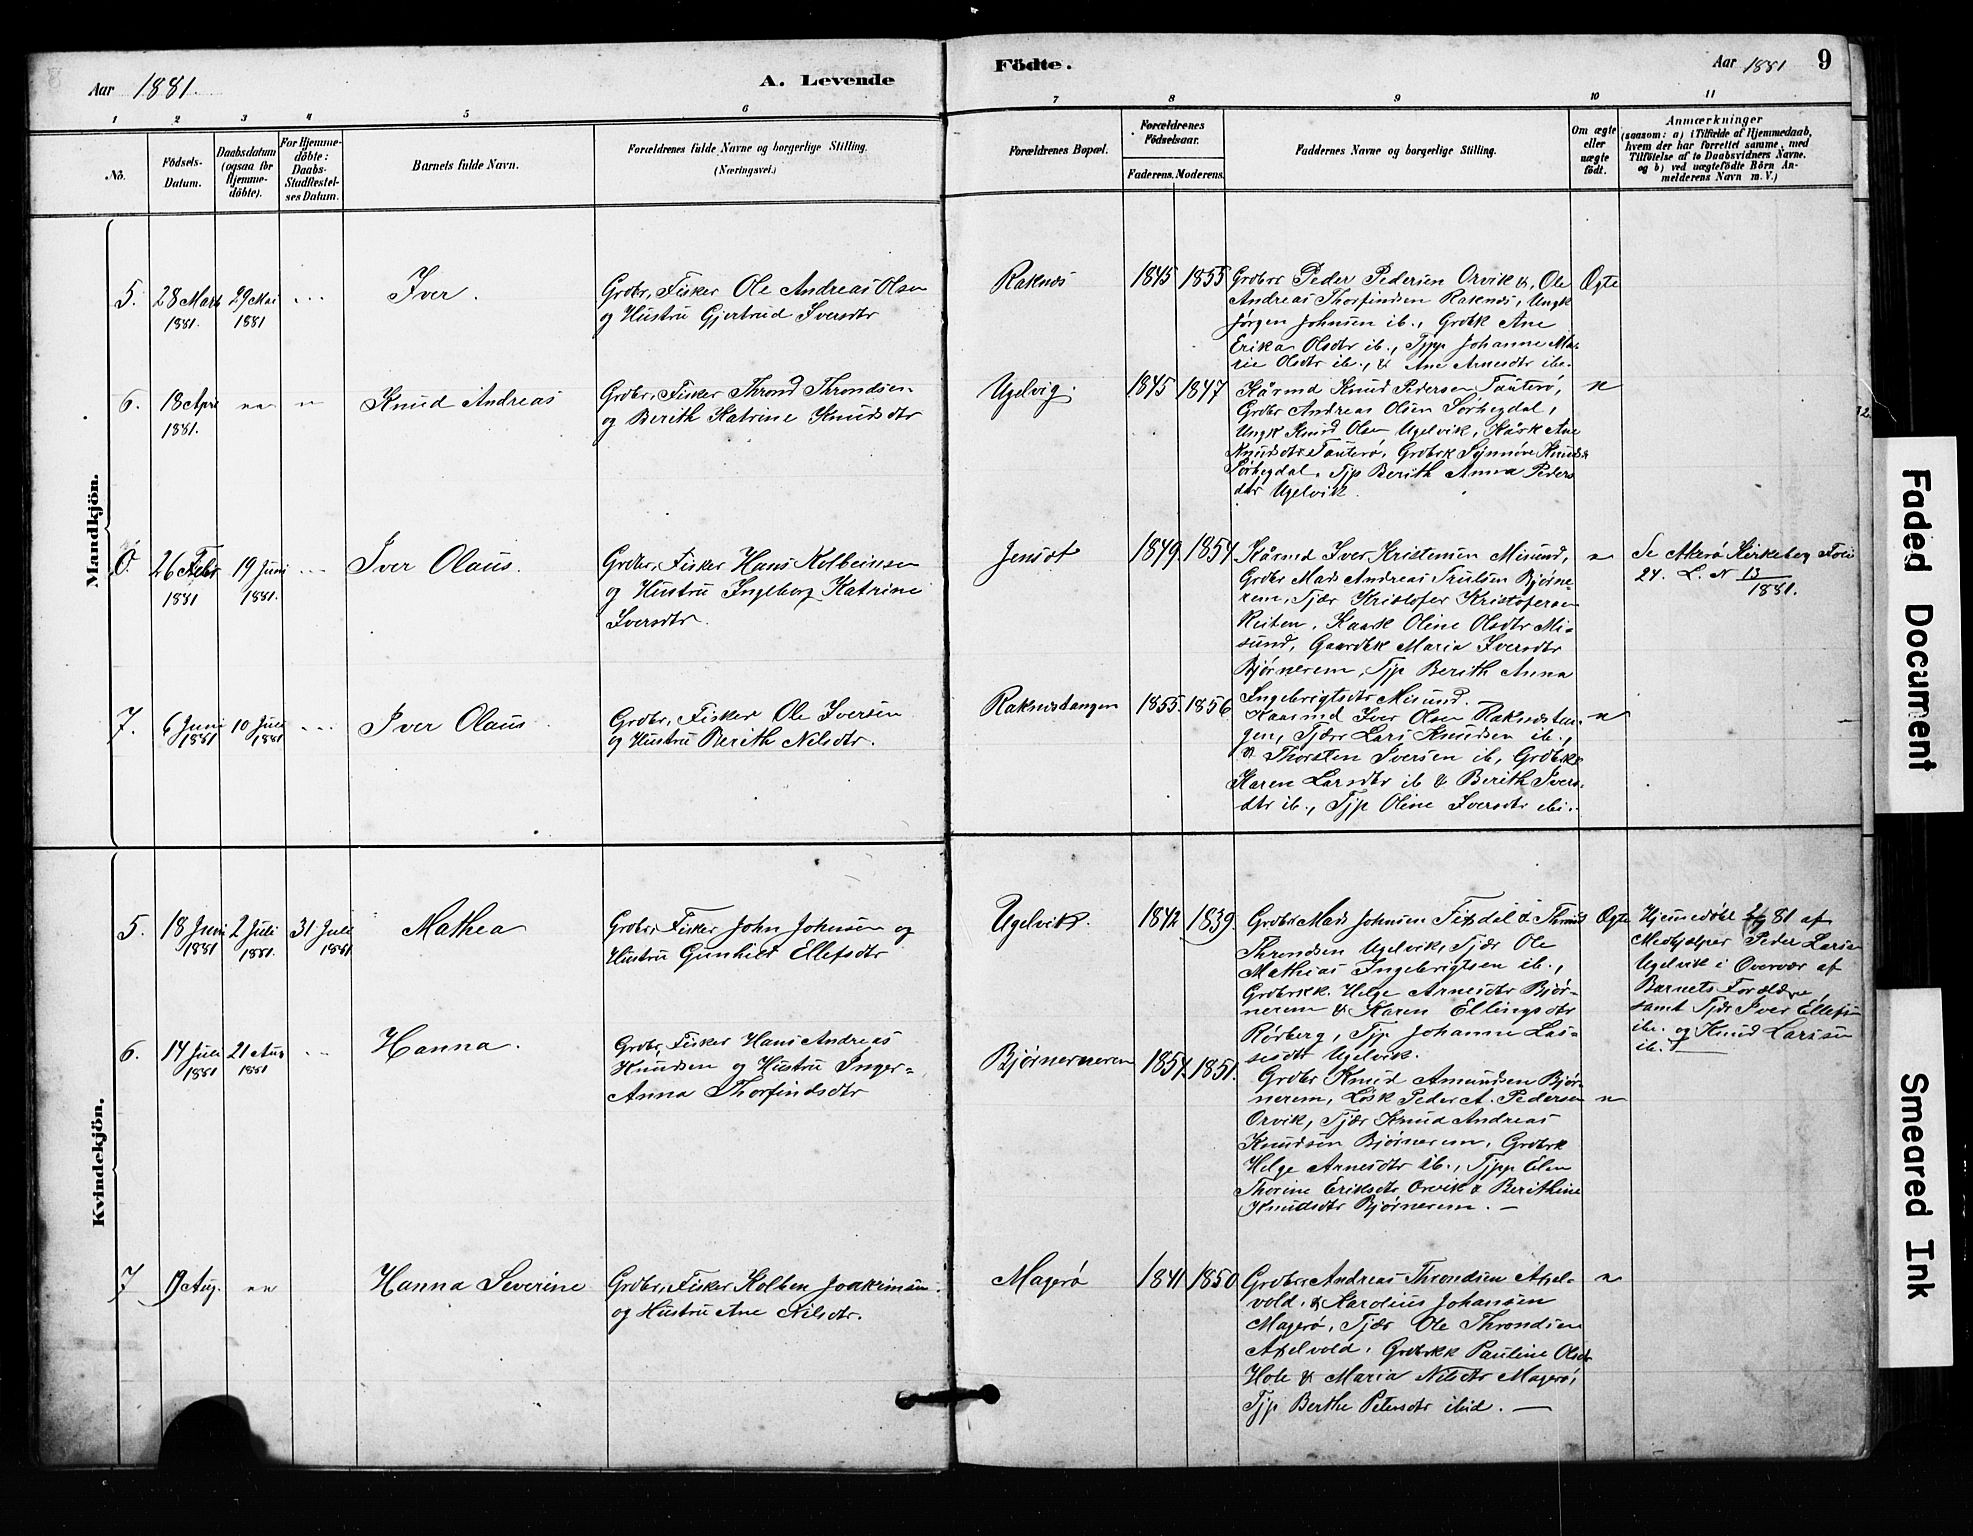 Aar 1881.
A. Levende
Födte.
Aar 1881
9
1 2 3 4 5 6 7 8 9 10 11
No.
Födsels-
Datum.
Daabsdatum
(ogsaa for
Hjemme-
döbte).
For Hjemme-
döbte:
Daabs-
Stadfæstel-
ses Datum.
Barnets fulde Navn.
Forældrenes fulde Navne og borgerlige Stilling.
(Næringsvei.)
Forældrenes Bopæl.
Forældrenes
Födselsaar.
Faderens. Moderens.
Faddernes Navne og borgerlige Stilling.
Om ægte
eller
uægte
födt.
Anmærkninger
(saasom: a) i Tilfælde af Hjemmedaab,
hvem der har forrettet samme, med
Tilföielse af to Daabsvidners Navne.
og b) ved uægtefödte Börn An-
melderens Navn m. V.)
Mandkjön.
5.
28 Marts
1881.
29 Mai
1881
Iver.
Grdbr, Fisker Ole Andreas Olsen
og Hustru Gjertrud Iversdtr
Raknes
1845
1855
Grdbrr Peder Pedersen Orvik &, Ole
Andreas Thorfindsen Raknes, Ungk
Jørgen Johnsen ib., Grdbk Ane
Erika Olsdtr ib., Tjpp Johanne Ma-
rie Olsdtr ib., & Ane Arnesdtr ib.
Ægte
6.
18 Apr
1881.
Knud Andreas
Grdbr, Fisker Thrond Throndsen
og Berith Katrine Knudsdtr
Ugelvig.
1845
1847
Kårmd Knud Pedersen Tauterö,
Grdbr Andreas Olsen Sørhegdal,
Ungk Knud Olsen Ugelvik, Kårk Ane
Knudsdtr Tauterö, Grdbrk Synnøve Knuds
Sørhegdal, Tjp Berith Anna Peders
dtr Ugelvik.
"
Ø.
26 Febr
1881
19 Juni
1881.
Iver Olaus.
Grdbr, Fisker Hans Kolbeinsen
og Hustru Ingeborg Katrine
Iversdtr.
1849.
1854
Kårmd Iver Kristensen Misund,
Grdbr Mads Andreas Trulsen Bjørne-
rem, Tjdr Kristofer Kristofersen
Reiten, Kaark Oline Olsdtr Mi-
sund, Gaardbk Maria Iversdtr
Bjørnerem, Tjp Berith Anna
Ingebrigtsdtr Misund. —
"
Se Akerö Kirkebog Folio
24. L. N 13/1881.
7.
6 Juni
1881
10 Juli
1881
Iver Olaus.
Grdbr, Fisker Ole Iversen
og Hustru Berith Nilsdtr.
Raknestangen
1855.
1856
Kaarmd Iver Olsen Raknestan-
gen, Tjdrr Lars Knudsen ib.,
& Thorsten Iversen ib, Grdbrkk
Karen Larsdtr ib & Berith Ivers-
dtr ib., Tjp Oline Iversdtr ibi.
"
Kvindekjön.
5.
18 Juni
1881
2 Juli
1881.
31 Juli
1881
Mathea
Grdbr, Fisker John Johnsen og
Hustru Gunhild Ellefsdtr
Ugelvik.
1842
1839.
Grdbr Mads Johnsen Tixdel & Thrond
Throndsen Ugelvik, Tjdr Ole
Mathias Ingebrigtsen ib.,
Grdbrkk. Helge Arnesdtr Bjør-
nerem & Karen Ellingsdtr
Rørberg, Tjp Johanne Las-
sesdtr Ugelvik.
Ægte
Hjemmedøbt 2/7 81 af
Medhjælper Peder Larsen
Ugelvik i Overvær af
Barnets Forældre,
samt Tjdr Iver Ellefsen
ib. og Knud Larssen
ib. —
6.
14 Juli
1881
21 Aug
1881
Hanna.
Grdbr, Fisker Hans Andreas
Knudsen og Hustru Inger-
Anna Thorfindsdtr
Bjørnerem
1854.
1851.
Grdbr Knud Amundsen Bjør-
nerem, Løsk Peder A. Pedersen
Orvik, Tjdr Knud Andreas
Knudsen Bjørnerem, Grdbrk
Helge Arnesdtr ib., Tjpp Elen
Thorine Eriksdtr Orvik & Berithine
Knudsdtr Bjørnerem. —
"
7
19 Aug.
Hanna Severine
Grdbr, Fisker Kolben Joakimsen.
og Hustru Ane Nilsdtr.
Magerö
1841
1850
Grdbrr Andreas Throndsen Axel-
vold, & Karolius Johansen
Magerö, Tjdr Ole Throndsen
Axelvold, Grdbrkk Pauline Olsdtr
Hole & Maria Nilsdtr Magerö,
Tjp Berthe Petersdtr ibid. —
"
Faded Document
Smeared Ink